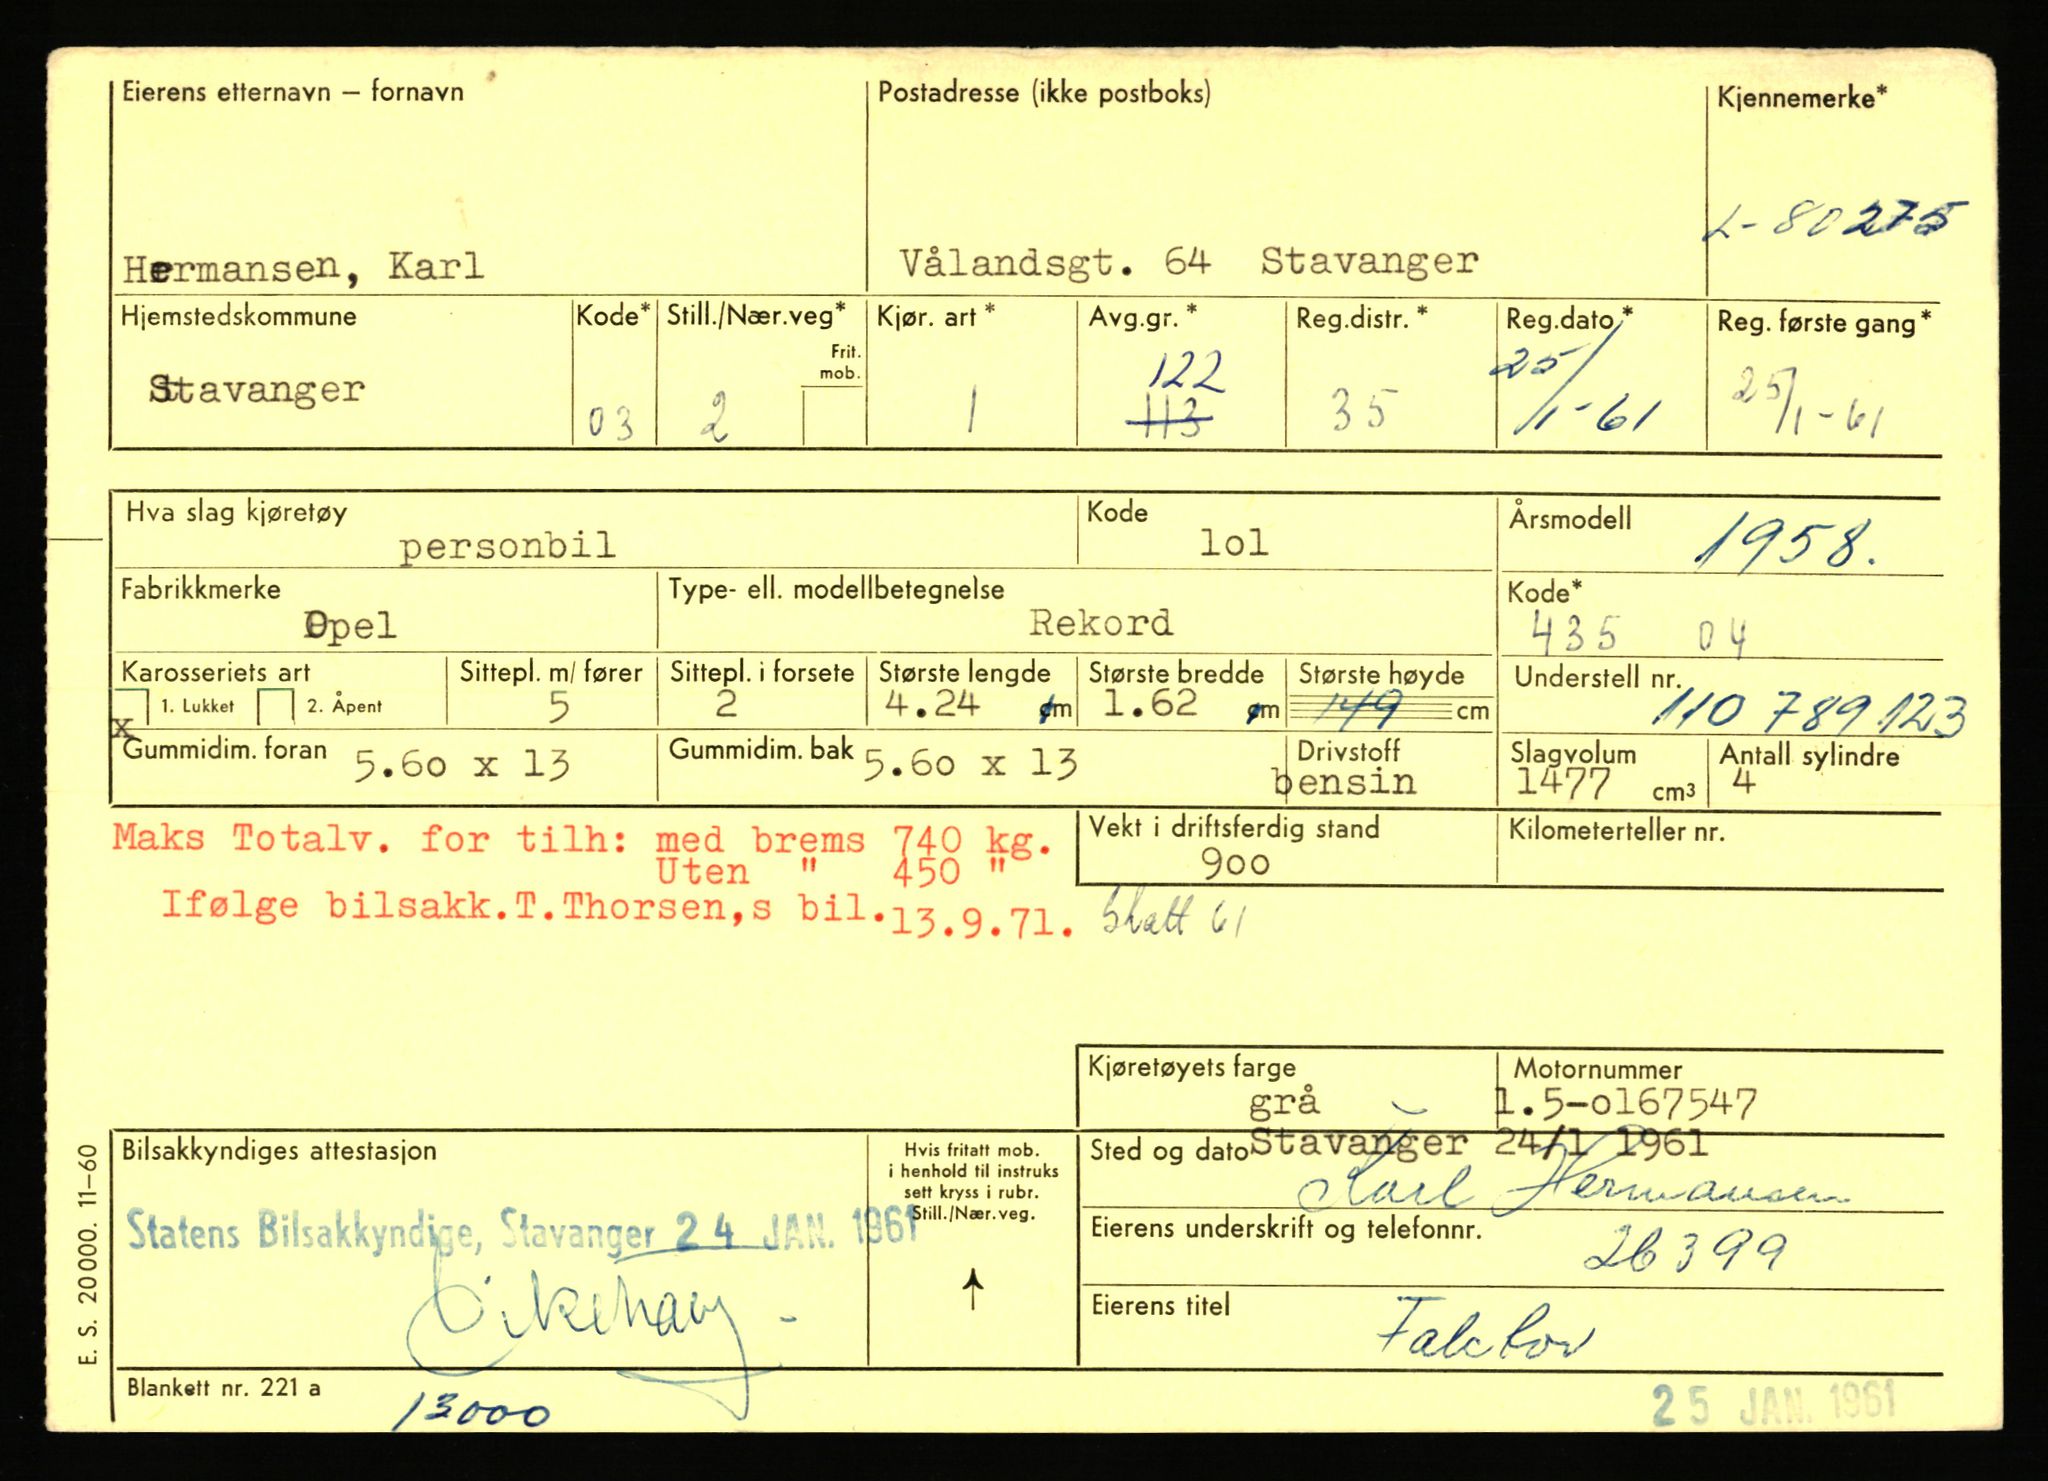 Eierens etternavn – fornavn
Postadresse (ikke postboks)
Kjennemerke*
L-80275
Hermansen, Karl
Vålandsgt. 64 Stavanger
Hjemstedskommune
Kode*
Still./Nær.veg*
Kjør. art*
Avg.gr.*
Reg.distr.*
Reg.dato*
Reg. første gang*
Frit.
mob.
Stavanger
03
2
1
122
113
35
25/1-61
25/1-61
Hva slag kjøretøy
personbil
Kode
lol
Årsmodell
1958.
Fabrikkmerke
Opel
Type- ell. modellbetegnelse
Rekord
Kode*
435 04
Karosseriets art
x 1. Lukket
2. Åpent
Sittepl. m/ fører
5
Sittepl. i forsete
2
Største lengde
4.24 m
Største bredde
1.62 m
Største høyde
149 cm
Understell nr.
110 789 123
Gummidim. foran
5.60 x 13
Gummidim. bak
5.60 x 13
Drivstoff
bensin
Slagvolum
1477 cm³
Antall sylindre
4
Maks Totalv. for tilh: med brems 740 kg.
Uten " 450 "
Ifølge bilsakk.T.Thorsen,s bil.13.9.71.
Vekt i driftsferdig stand
900
Kilometerteller nr.
Skatt 61
Kjøretøyets farge
grå
Motornummer
1.5-o167547
Bilsakkyndiges attestasjon
Hvis fritatt mob.
i henhold til instruks
sett kryss i rubr.
Still./Nær.veg.
Sted og dato Stavanger 24/1 1961
Karl Hermansen
Statens Bilsakkyndige, Stavanger 24 JAN. 1961
Eierens underskrift og telefonnr.
26399
Eierens titel
Faktor
E. S. 20000. 11-60
Blankett nr. 221 a
13000
25 JAN. 1961